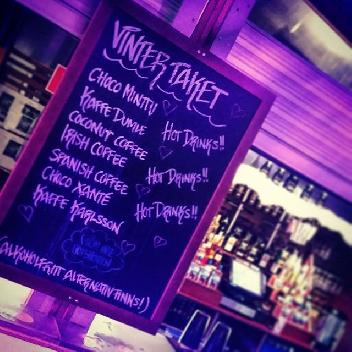 VINTER TAKET
CHOCO MINTTU
KAFFE DUMLE
COCONUT COFFEE
IRISH COFFEE
SPANISH COFFEE
CHOCO XANTÉ
KAFFE KARLSSON
HOT DRINKS!!
HOT DRINKS!!
HOT DRINKS!!
(ALKOHOLFRITT ALTERNATIV FINNS!)